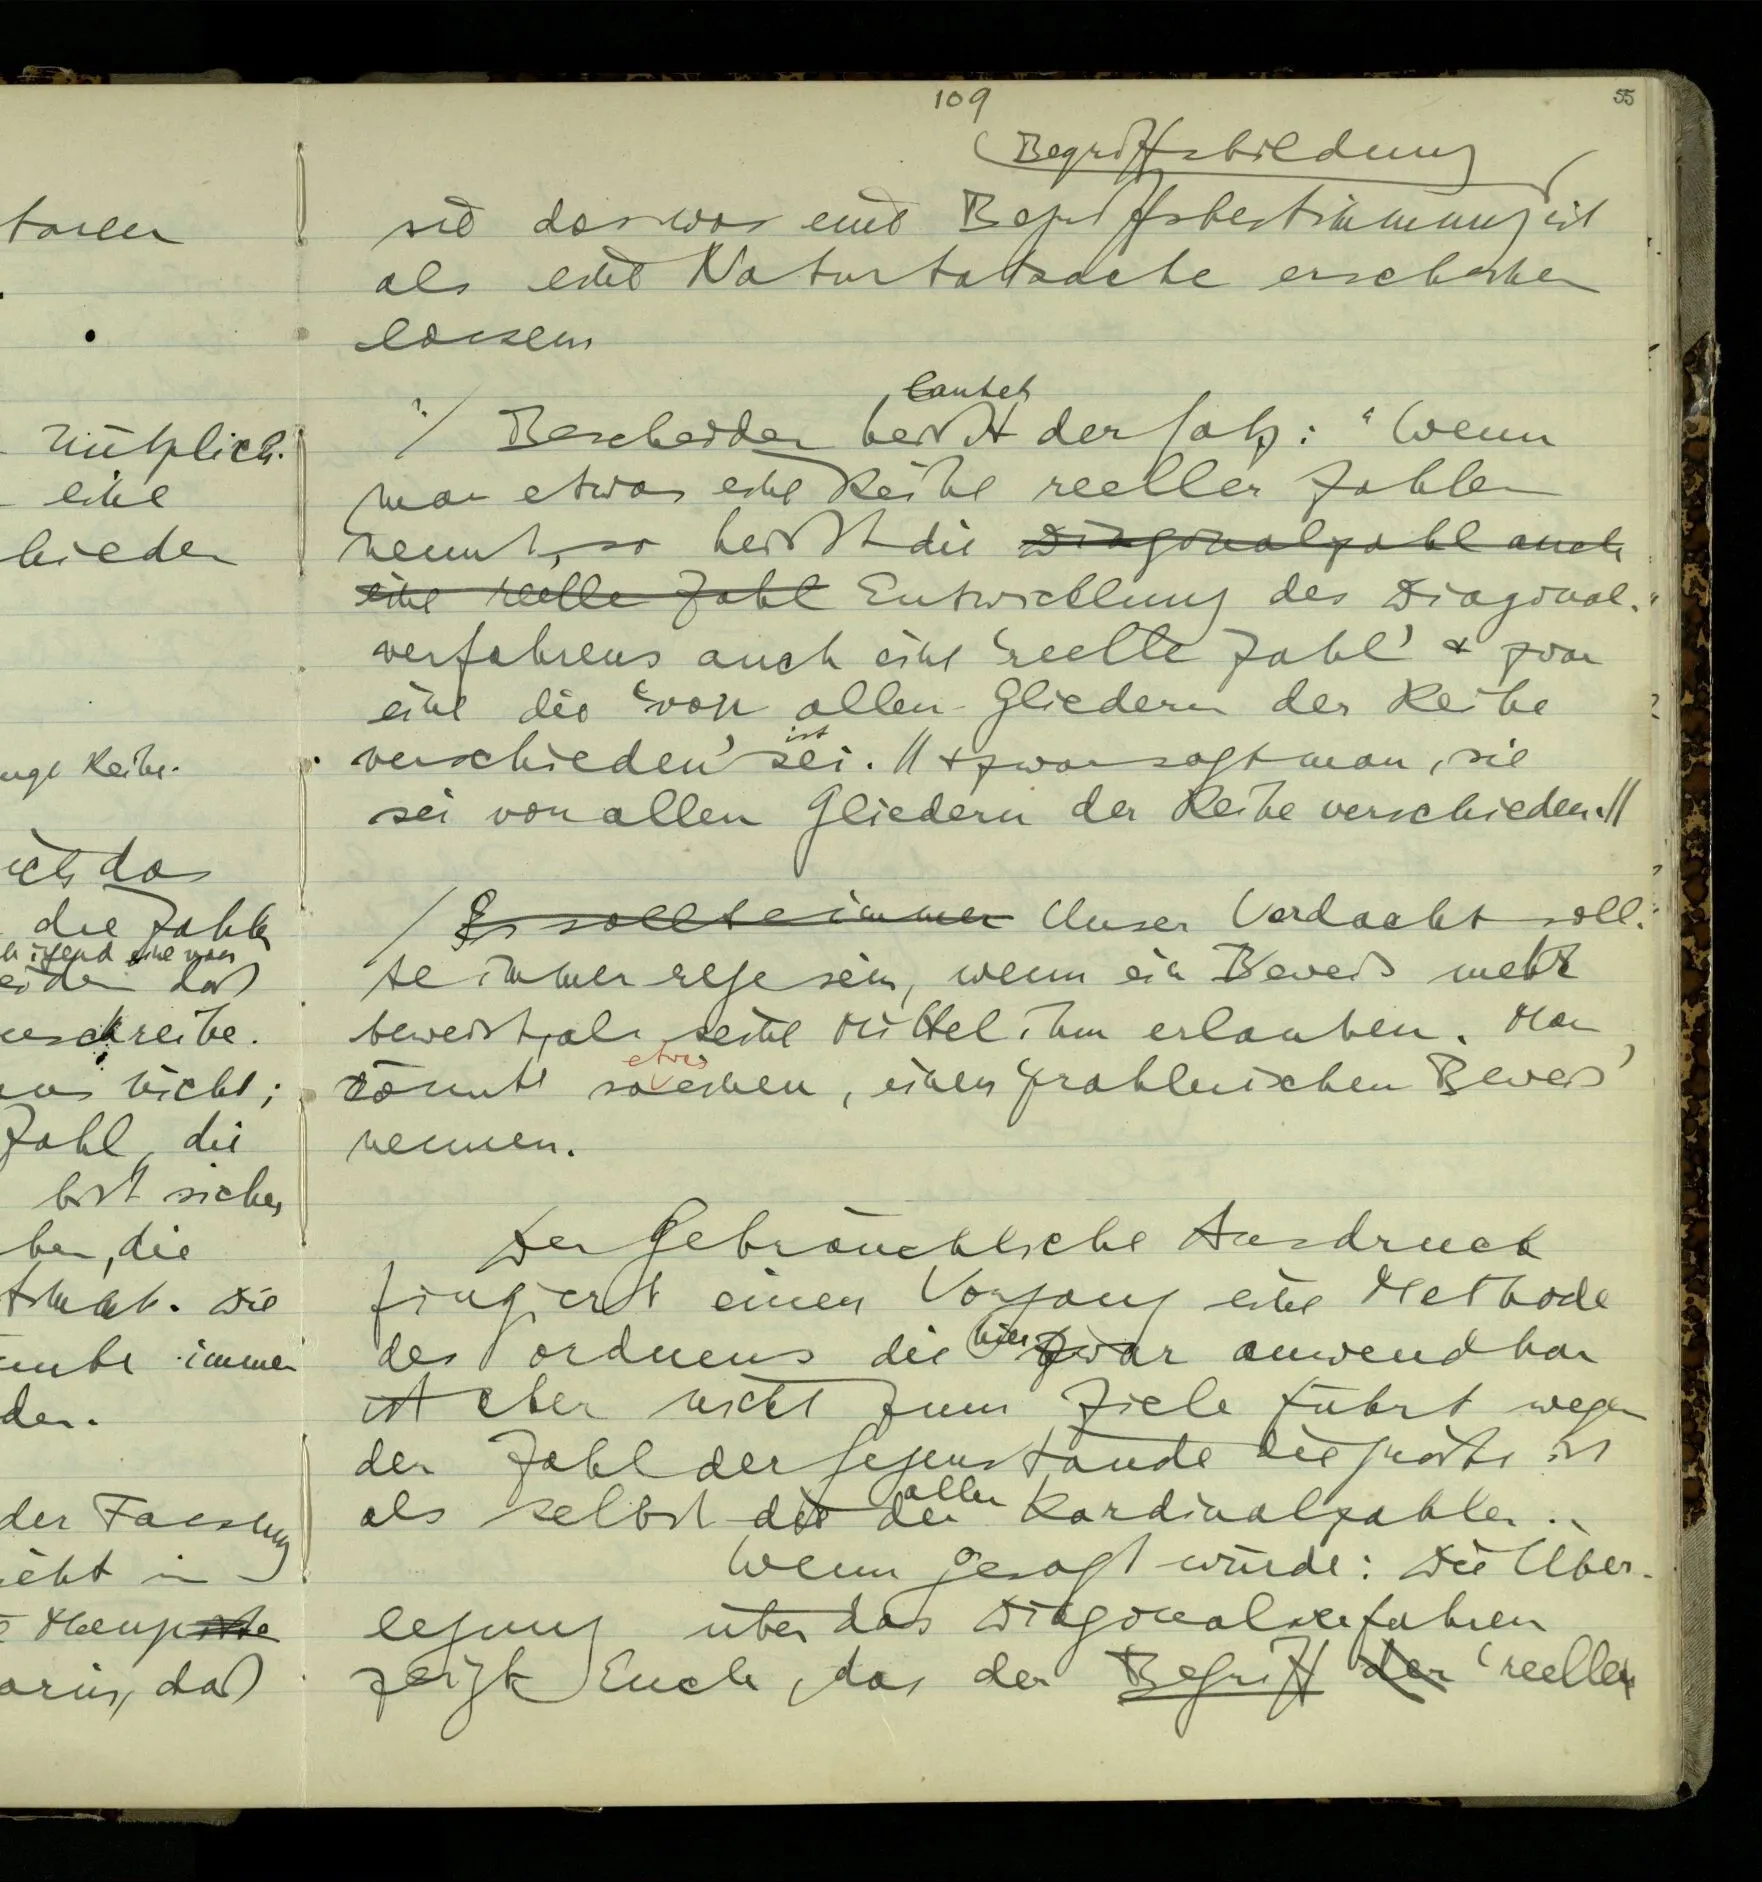 109
55
Begriffsbildung
sie das was eine Begriffsbestimmung ist
als eine Naturtatsache erscheinen
lassen
?/ Bescheiden heißt lautet der Satz: "Wenn
man etwas eine Reihe reeller Zahlen
nennt, so heißt die Diagonalzahl auch
eine reelle Zahl Entwicklung des Diagonal-
verfahrens auch eine 'reelle Zahl' & zwar
eine die 'von allen Gliedern der Reihe
verschieden' sei ist. // & zwar sagt man, sie
sei von allen Gliedern der Reihe verschieden. //
/ Es sollte immer Unser Verdacht soll-
te immer rege sein, wenn ein Beweis mehr
beweist, als seine Mittel ihm erlauben. Man
könnte so etwas einen, einen 'prahlerischen Beweis'
nennen.
Der gebräuchliche Ausdruck
fingiert einen Vorgang eine Methode
des ordnens die hier zwar anwendbar
ist aber nicht zum Ziele führt wegen
der Zahl der Gegenstände die größer ist
als selbst die der aller Kardinalzahlen ..
Wenn gesagt würde: Die Über-
legung über das Diagonalverfahren
zeigt Euch, das der Begriff der 'reellen
taren
nützlich.
eine
hieden
Reihe.
ich das
die Zahl
irgend eine von
daß
nicht;
Zahl, die
bist sicher
die
Die
immer
der Fassung
in
orin, daß